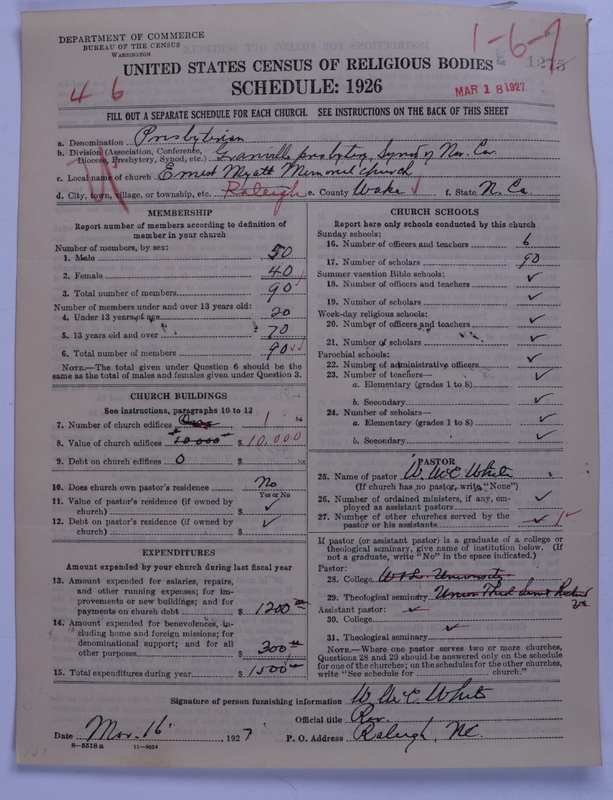 DEPARTMENT OF COMMERCE
BUREAU OF THE CENSUS
WASHINGTON
1-6-7
1275
UNITED STATES CENSUS OF RELIGIOUS BODIES
SCHEDULE: 1926
4 6
MAR 18 1927
FILL OUT A SEPARATE SCHEDULE FOR EACH CHURCH. SEE INSTRUCTIONS ON THE BACK OF THIS SHEET
a. Denomination Presbyterian
b. Division (Association, Conference, Diocese, Presbytery, Synod, etc.) Granville presbytery, Synod of No. Ca.
c. Local name of church Ernest Myatt Memorial church
d. City, town, village, or township, etc. Raleigh e. County Wake f. State N. Ca.
MEMBERSHIP
Report number of members according to definition of member in your church
Number of members, by sex:
1. Male 50
2. Female 40
3. Total number of members 90
Number of members under and over 13 years old:
4. Under 13 years of age 20
5. 13 years old and over 70
6. Total number of members 90
NOTE.—The total given under Question 6 should be the same as the total of males and females given under Question 3.
CHURCH BUILDINGS
See instructions, paragraphs 10 to 12
7. Number of church edifices One 1
8. Value of church edifices 10000 $ 10,000
9. Debt on church edifices 0 $
10. Does church own pastor's residence No
Yes or No
11. Value of pastor's residence (if owned by church) $ ✓
12. Debt on pastor's residence (if owned by church) $ ✓
EXPENDITURES
Amount expended by your church during last fiscal year
13. Amount expended for salaries, repairs, and other running expenses; for improvements or new buildings; and for payments on church debt $ 1200 00
14. Amount expended for benevolences, including home and foreign missions; for denominational support; and for all other purposes $ 300 00
15. Total expenditures during year $ 1500 00
CHURCH SCHOOLS
Report here only schools conducted by this church
Sunday schools:
16. Number of officers and teachers 6
17. Number of scholars 90
Summer vacation Bible schools:
18. Number of officers and teachers ✓
19. Number of scholars ✓
Week-day religious schools:
20. Number of officers and teachers ✓
21. Number of scholars ✓
Parochial schools:
22. Number of administrative officers ✓
23. Number of teachers—
a. Elementary (grades 1 to 8) ✓
b. Secondary ✓
24. Number of scholars—
a. Elementary (grades 1 to 8) ✓
b. Secondary ✓
PASTOR
25. Name of pastor W. McC. White
(If church has no pastor, write "None")
26. Number of ordained ministers, if any, employed as assistant pastors ✓
27. Number of other churches served by the pastor or his assistants ✓
If pastor (or assistant pastor) is a graduate of a college or theological seminary, give name of institution below. (If not a graduate, write "No" in the space indicated.)
Pastor:
28. College W & L University
29. Theological seminary Union Theol Semt Richmd Va
Assistant pastor: ✓
30. College
31. Theological seminary ✓
NOTE.—Where one pastor serves two or more churches, Questions 28 and 29 should be answered only on the schedule for one of the churches; on the schedules for the other churches, write "See schedule for ........ church."
Signature of person furnishing information W. McC. White
Official title Rev.
Date Mar. 16, 1927 P. O. Address Raleigh, NC.
8—5518 a 11—9054